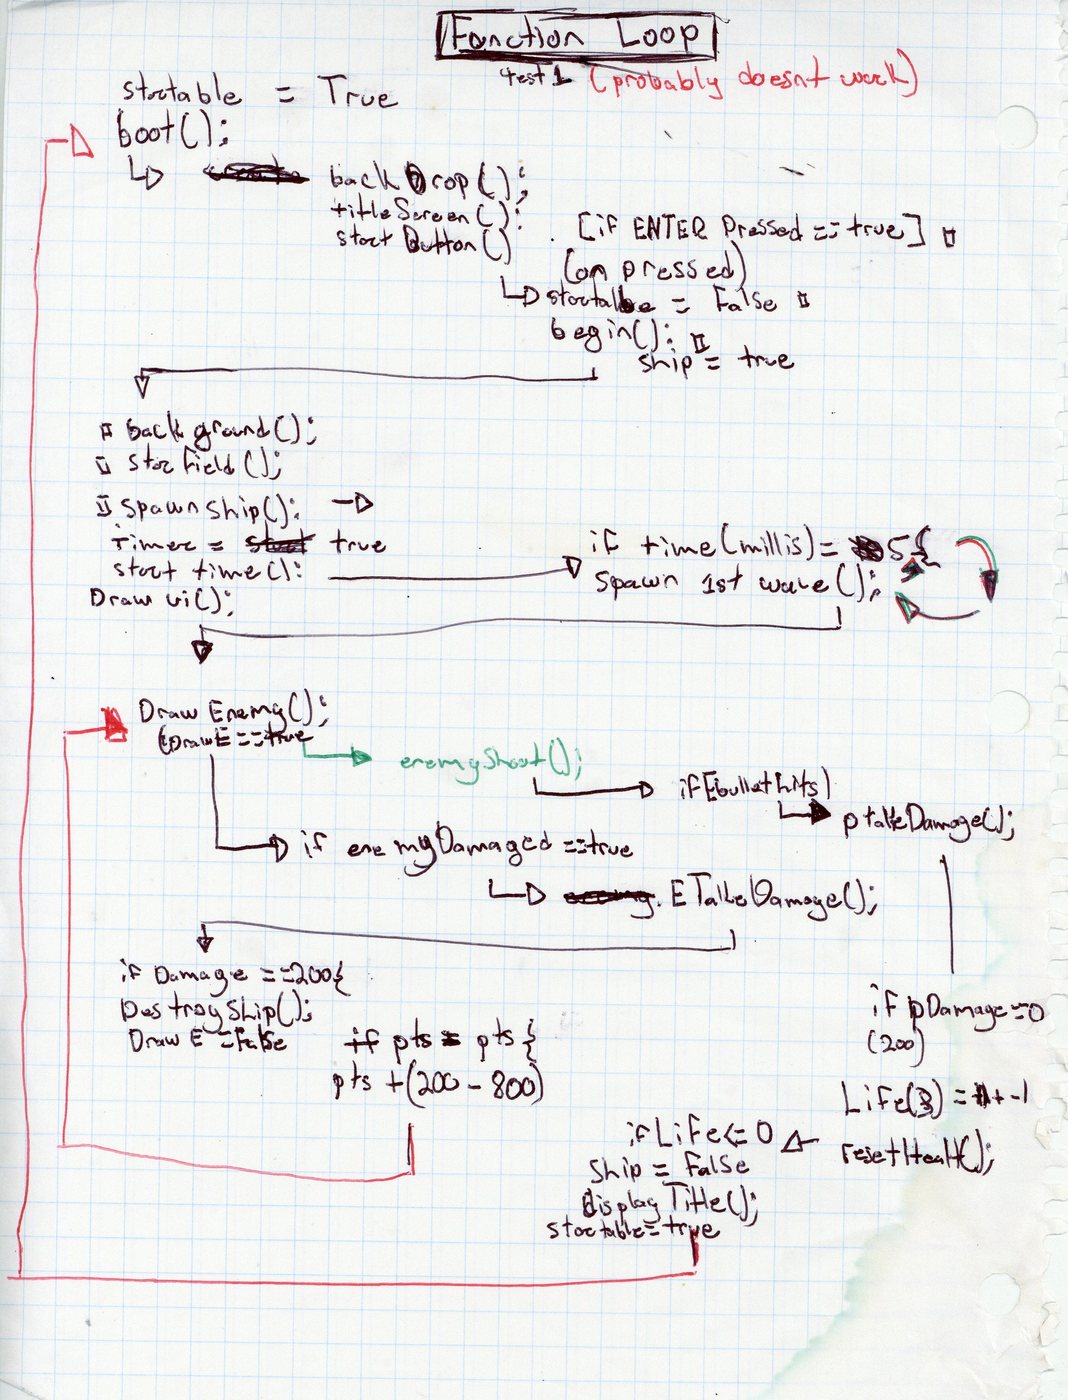 Function Loop
test 1 (probably doesnt work)
startable = True
boot();
backDrop();
titleScreen();
startButton() [if ENTER Pressed == true]
(on pressed)
startalbe = False
begin();
ship = true
background();
starfield();
spawnship();
timer = true
start time();
Draw ui();
if time(millis)= 5{
Spawn 1st wave();
Draw Enemy();
(DrawE == true
enemyShoot();
if Ebullet hits)
ptakeDamage();
if enemyDamaged == true
ETakeDamage();
if Damage == 200{
Destroy Ship();
Draw E = False
if pts = pts {
pts + (200 - 800)
if pDamage = 0
(200)
Life(3) = -1
resetHealt();
if Life <= 0
Ship = False
displayTitle();
startable = true